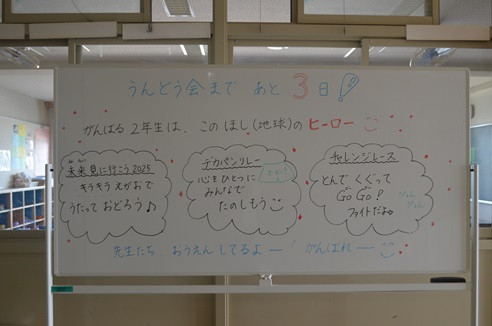 うんどう会まで あと 3日!
がんばる 2年生は、この ほし(地球)の ヒーロー
未来 見に行こう 2025
キラキラ えがおで
うたって おどろう♪
デカパンリレー
心をひとつに
みんなで
たのしもう
チャレンジレース
とんで くぐって
GO GO!
ファイトだよ
先生たち、おうえんしてるよー! がんばれー